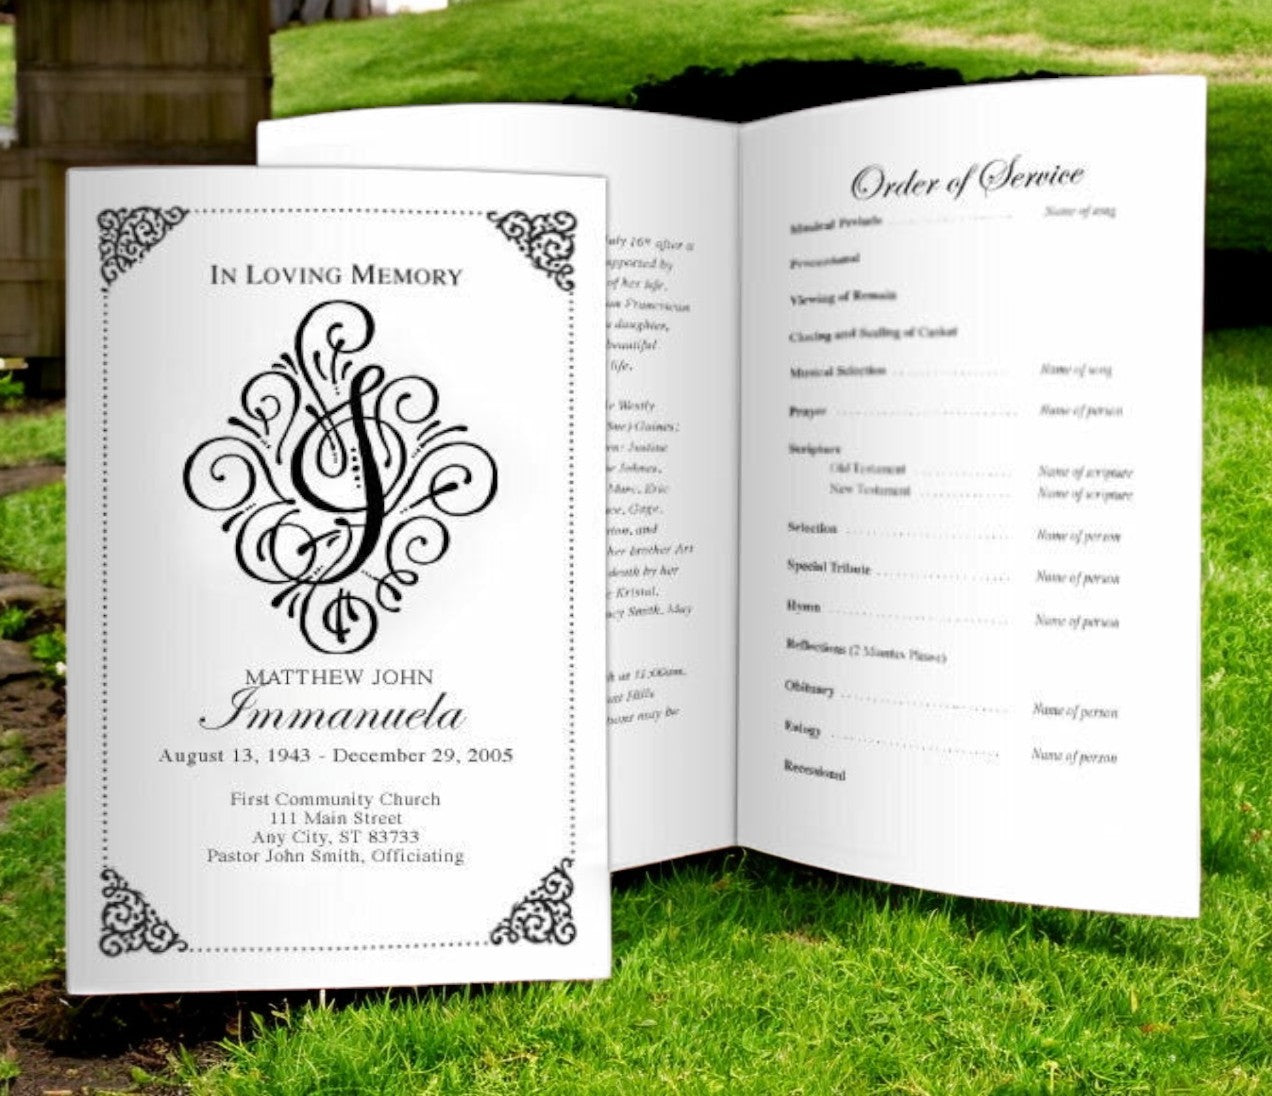 IN LOVING MEMORY
MATTHEW JOHN
Immanuela
August 13, 1943 - December 29, 2005
First Community Church
111 Main Street
Any City, ST 83733
Pastor John Smith, Officiating
July 16th after a
supported by
of her life.
Franciscan
daughter,
beautiful
life.
Westly
Sue) Gaines;
Justine
Johnes,
Marc, Eric
Gage,
and
her brother Art
death by her
Kristal,
Smith, May
at 11:00am.
Hills
may be
Order of Service
Musical Prelude Name of song
Processional
Viewing of Remain
Closing and Sealing of Casket
Musical Selection Name of song
Prayer Name of person
Scripture
Old Testament Name of scripture
New Testament Name of scripture
Selection Name of person
Special Tribute Name of person
Hymn Name of person
Reflections (2 Minutes Please)
Obituary Name of person
Eulogy Name of person
Recessional